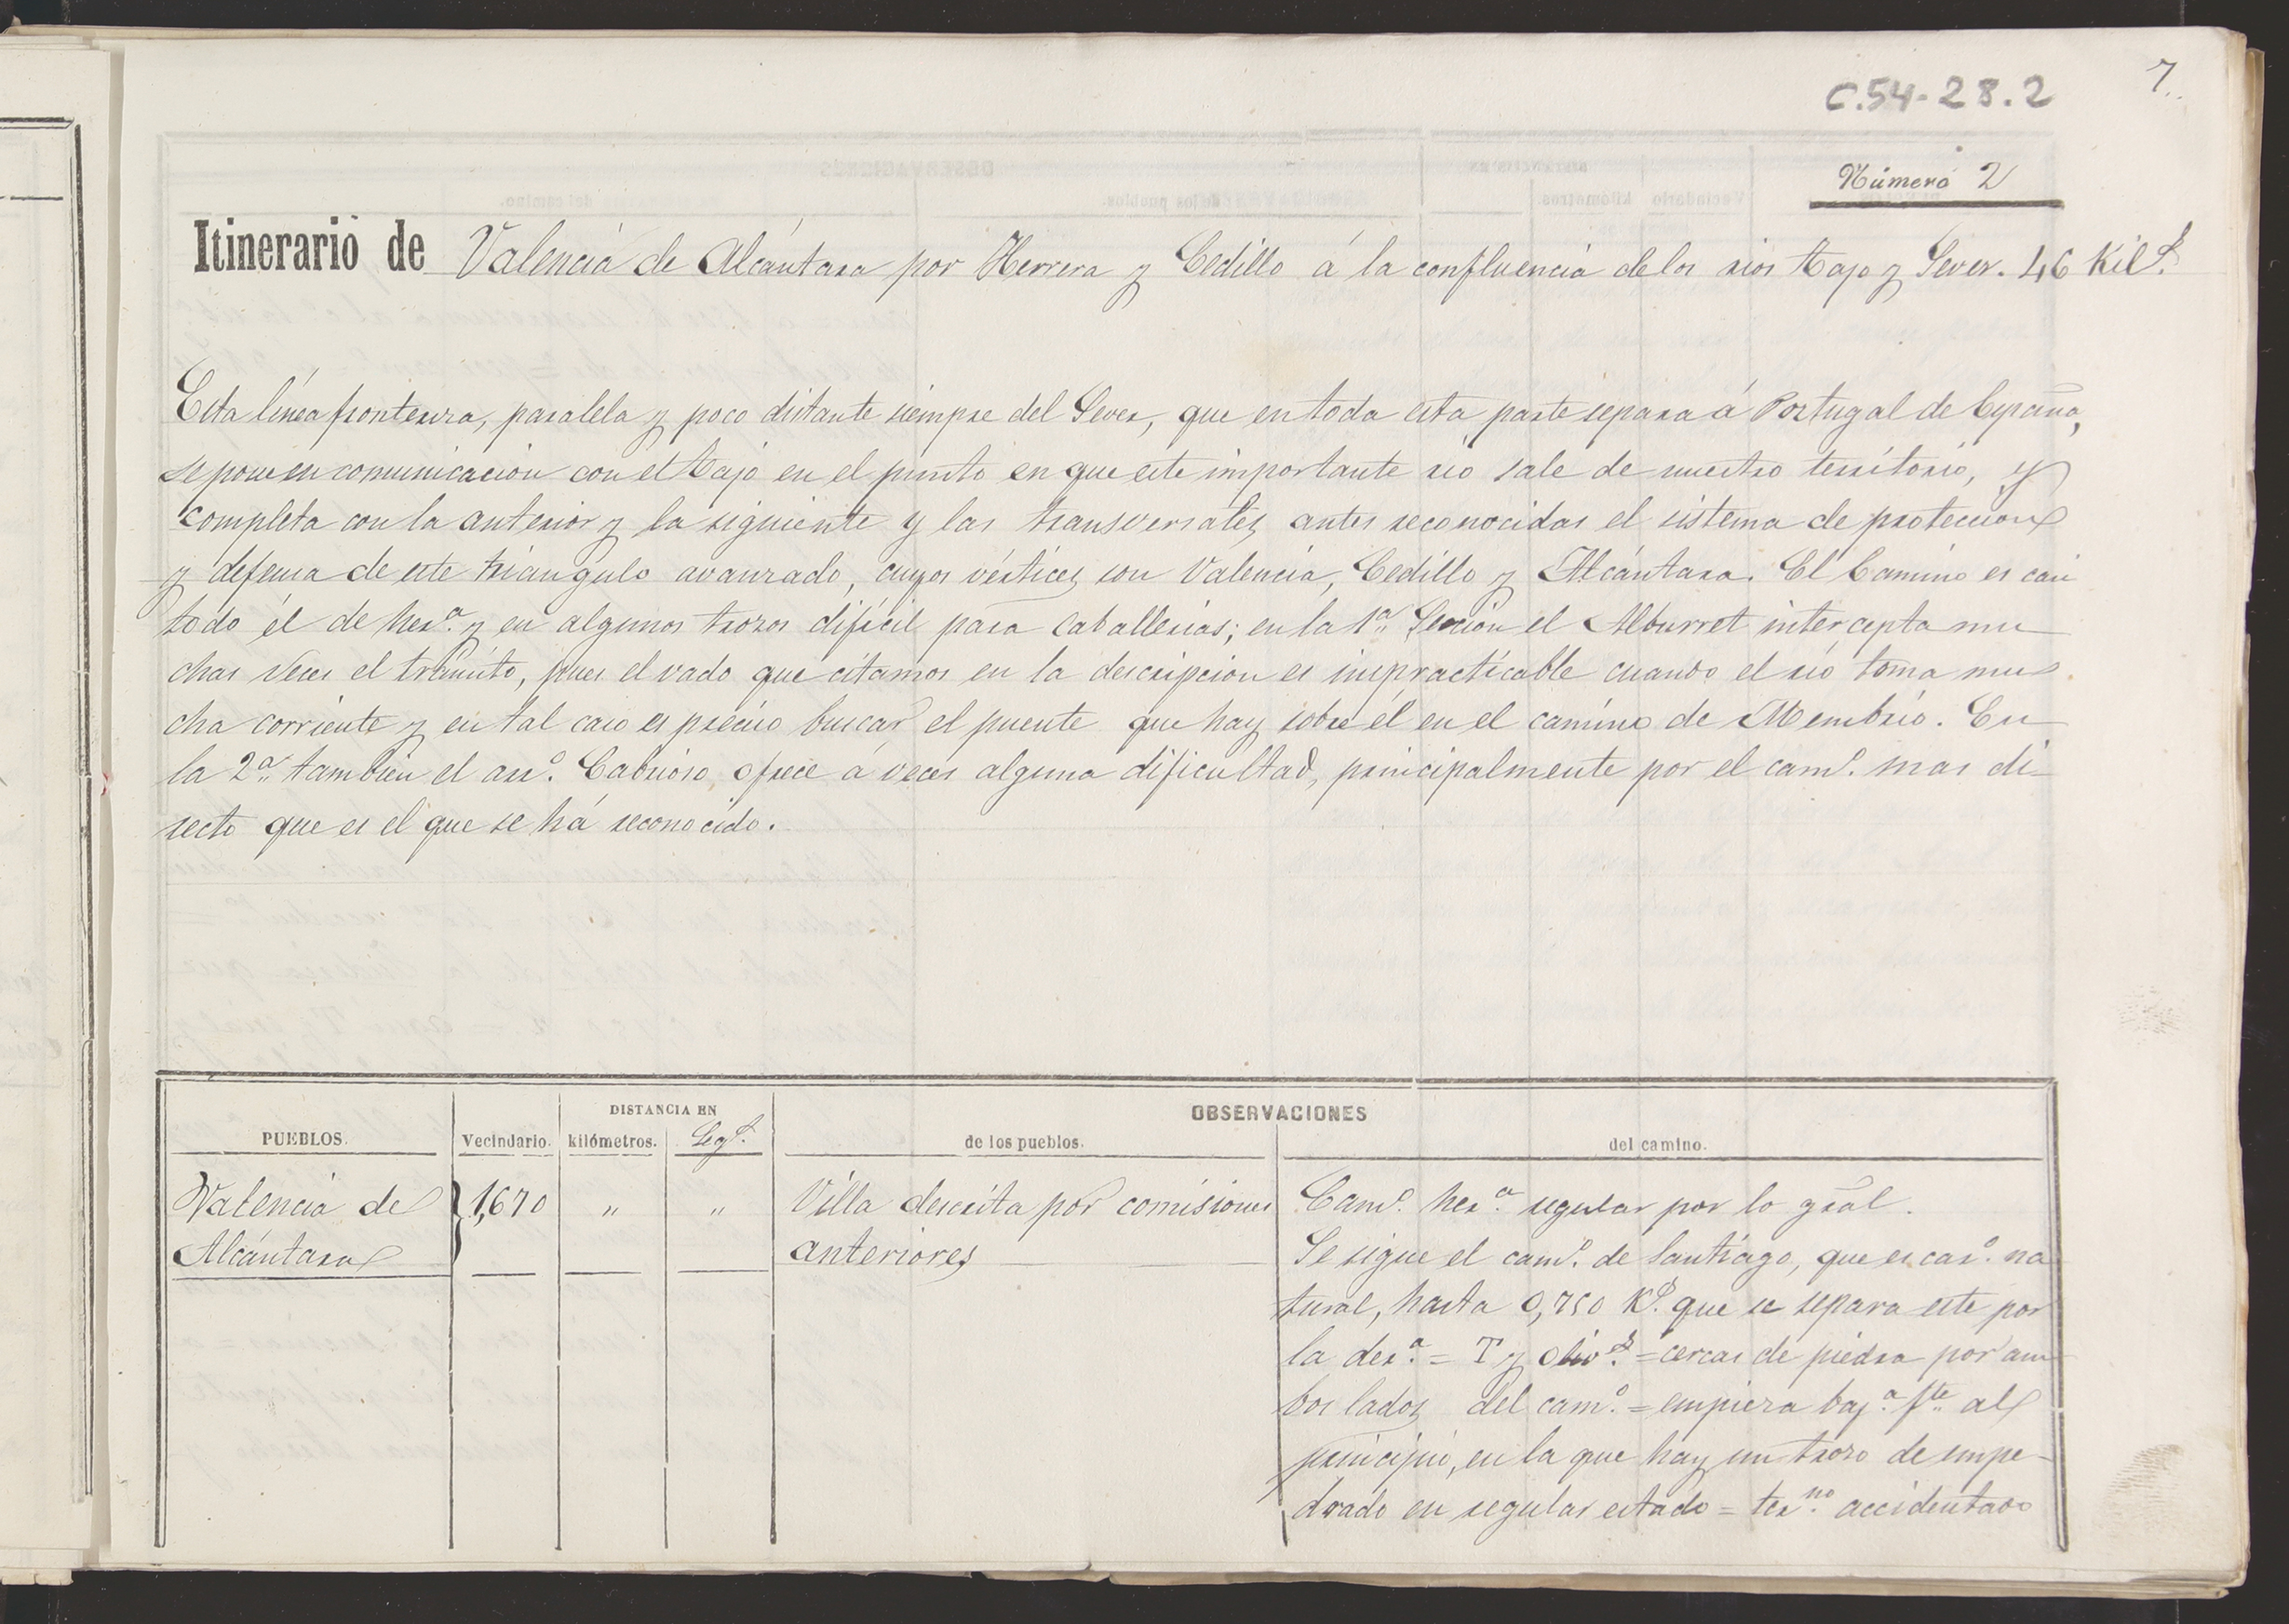 C.54-28.2
7
Número 2
Itinerario de Valencia de Alcántara por Herrera y Cedillo á la confluencia de los rios Tajo y Sever. 46 Kil.s
Esta línea fronteriza, paralela y poco distante siempre del Sever, que en toda esta parte separa á Portugal de España,
se pone en comunicacion con el Tajo en el punto en que este importante rio sale de nuestro territorio, y
completa con la anterior y la siguiente y las transversales antes reconocidas el sistema de proteccion
y defensa de este triangulo avanzado, cuyos vértices son Valencia, Cedillo y Alcántara. El Camino es casi
todo él de her.a y en algunos trozos dificil para caballerias; en la 1.a Seccion el Alburret intercepta mu
chas veces el tránsito, pues el vado que citamos en la descripcion es impracticable cuando el rio toma mu
cha corriente y en tal caso es preciso buscar el puente que hay sobre él en el camino de Membrio. En
la 2.a tambien el arr.o Cabrioso ofrece á veces alguna dificultad, principalmente por el cam.o mas di-
recto que es el que se há reconocido.
PUEBLOS. Vecindario. DISTANCIA EN kilómetros. Leg.s OBSERVACIONES de los pueblos. del camino.
Valencia de
Alcántara
1,670 " "
Villa descrita por comisiones
anteriores
Cam.o her.a regular por lo gral.
Se sigue el cam.o de Santiago, que es car.o na
tural, hasta 0,750 K.s que se separa este por
la der.a = T y oliv.s = cercas de piedra por am
bos lados del cam.o = empieza baj.a fte al
principio, en la que hay un trozo de empe-
drado en regular estado = ter.no accidentado